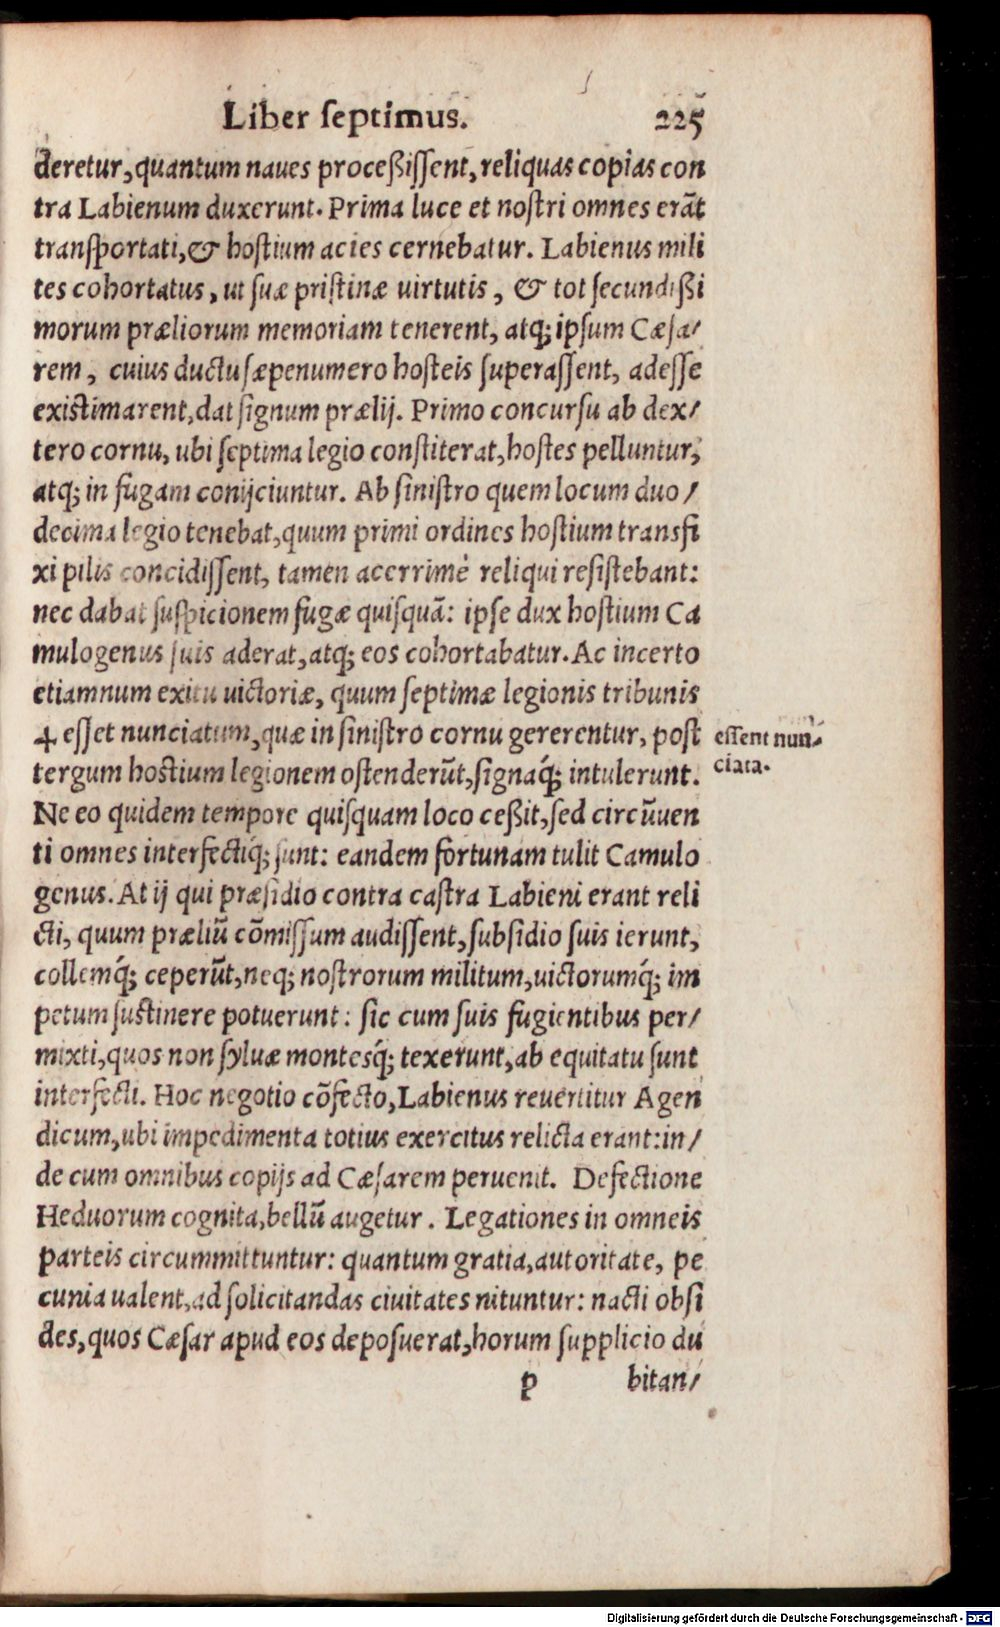 Liber ſeptimus. 225
deretur, quantum naues proceßiſſent, reliquas copias con
tra Labienum duxerunt. Prima luce et noſtri omnes erāt
tranſportati, & hoſtium acies cernebatur. Labienus mili
tes cohortatus, ut ſuæ priſtinæ uirtutis, & tot ſecundißi
morum præliorum memoriam tenerent, atq; ipſum Cæſa/
rem, cuius ductu ſæpenumero hoſteis ſuperaſſent, adeſſe
existimarent, dat ſignum prælij. Primo concurſu ab dex/
tero cornu, ubi ſeptima legio conſtiterat, hoſtes pelluntur,
atq; in fugam conijciuntur. Ab ſiniſtro quem locum duo/
decima legio tenebat, quum primi ordines hoſtium transfi
xi pilis concidiſſent, tamen acerrimè reliqui reſiſtebant:
nec dabat ſuſpicionem fugæ quiſquā: ipſe dux hoſtium Ca
mulogenus ſuis aderat, atq; eos cohortabatur. Ac incerto
etiamnum exitu uictoriæ, quum ſeptimæ legionis tribunis
✢ eſſet nunciatum, quæ in ſiniſtro cornu gererentur, poſt
tergum hostium legionem oſtenderūt, ſignaq́; intulerunt.
Ne eo quidem tempore quiſquam loco ceßit, ſed circūuen
ti omnes interfectiq́; ſunt: eandem fortunam tulit Camulo
genus. At ij qui præſidio contra caſtra Labieni erant reli
cti, quum præliū cōmiſſum audiſſent, ſubſidio ſuis ierunt,
collemq́; ceperūt, neq; noſtrorum militum, uictorumq́; im
petum ſustinere potuerunt: ſic cum ſuis fugientibus per/
mixti, quos non ſyluæ montesq́; texerunt, ab equitatu ſunt
interfecti. Hoc negotio cōfecto, Labienus reuertitur Agen
dicum, ubi impedimenta totius exercitus relicta erant: in/
de cum omnibus copijs ad Cæſarem peruenit. Defectione
Heduorum cognita, bellū augetur. Legationes in omneis
parteis circummittuntur: quantum gratia, autoritate, pe
cunia ualent, ad ſolicitandas ciuitates nituntur: nacti obſi
des, quos Cæſar apud eos depoſuerat, horum ſupplicio du
p bitan/
eſſent nun-
ciata.
Digitalisierung gefördert durch die Deutsche Forschungsgemeinschaft - DFG